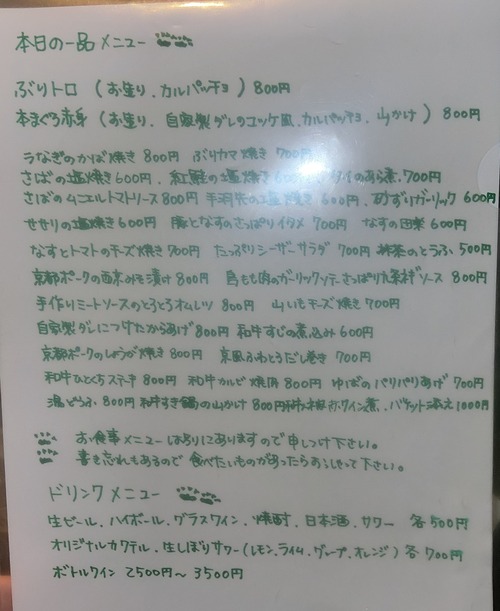 本日の一品メニュー
ぶりトロ (お造り、カルパッチョ) 800円
本まぐろ赤身 (お造り、自家製ダレのユッケ風、カルパッチョ、山かけ) 800円
うなぎのかば焼き 800円 ぶりカマ焼き 700円
さばの塩焼き600円、紅鮭の塩焼き 600円 タイのあら煮、700円
さばのムニエルトマトソース 800円 手羽先の塩焼き 600円、砂ずりガーリック 600円
せせりの塩焼き600円 豚となすのさっぱりイタメ 700円 なすの田楽 600円
なすとトマトのチーズ焼き 700円 たっぷりシーザーサラダ 700円 抹茶のとうふ 500円
京都ポークの西京みそ漬け 800円 鳥もも肉のガーリックソテーさっぱり九条ネギソース 800円
手作りミートソースのとろとろオムレツ 800円 山いもチーズ焼き 700円
自家製ダレにつけたからあげ 800円 和牛すじの煮込み 600円
京都ポークのしょうが焼き 800円 京風ふわとろだし巻き 700円
和牛ひとくちステキ 800円 和牛カルビ焼肉 800円 ゆばのパリパリあげ 700円
湯どうふ 800円 和牛すき鍋の山かけ 800円 赤ワイン煮、バケット添え 1000円
お食事メニューはありにありますので申しつけ下さい。
書き忘れもあるので食べたいものがあったらおっしゃって下さい。
ドリンクメニュー
生ビール、ハイボール、グラスワイン、焼酎、日本酒、サワー 各500円
オリジナルカクテル、生しぼりサワー(レモン、ライム、グレープ、オレンジ) 各700円
ボトルワイン 2500円〜3500円